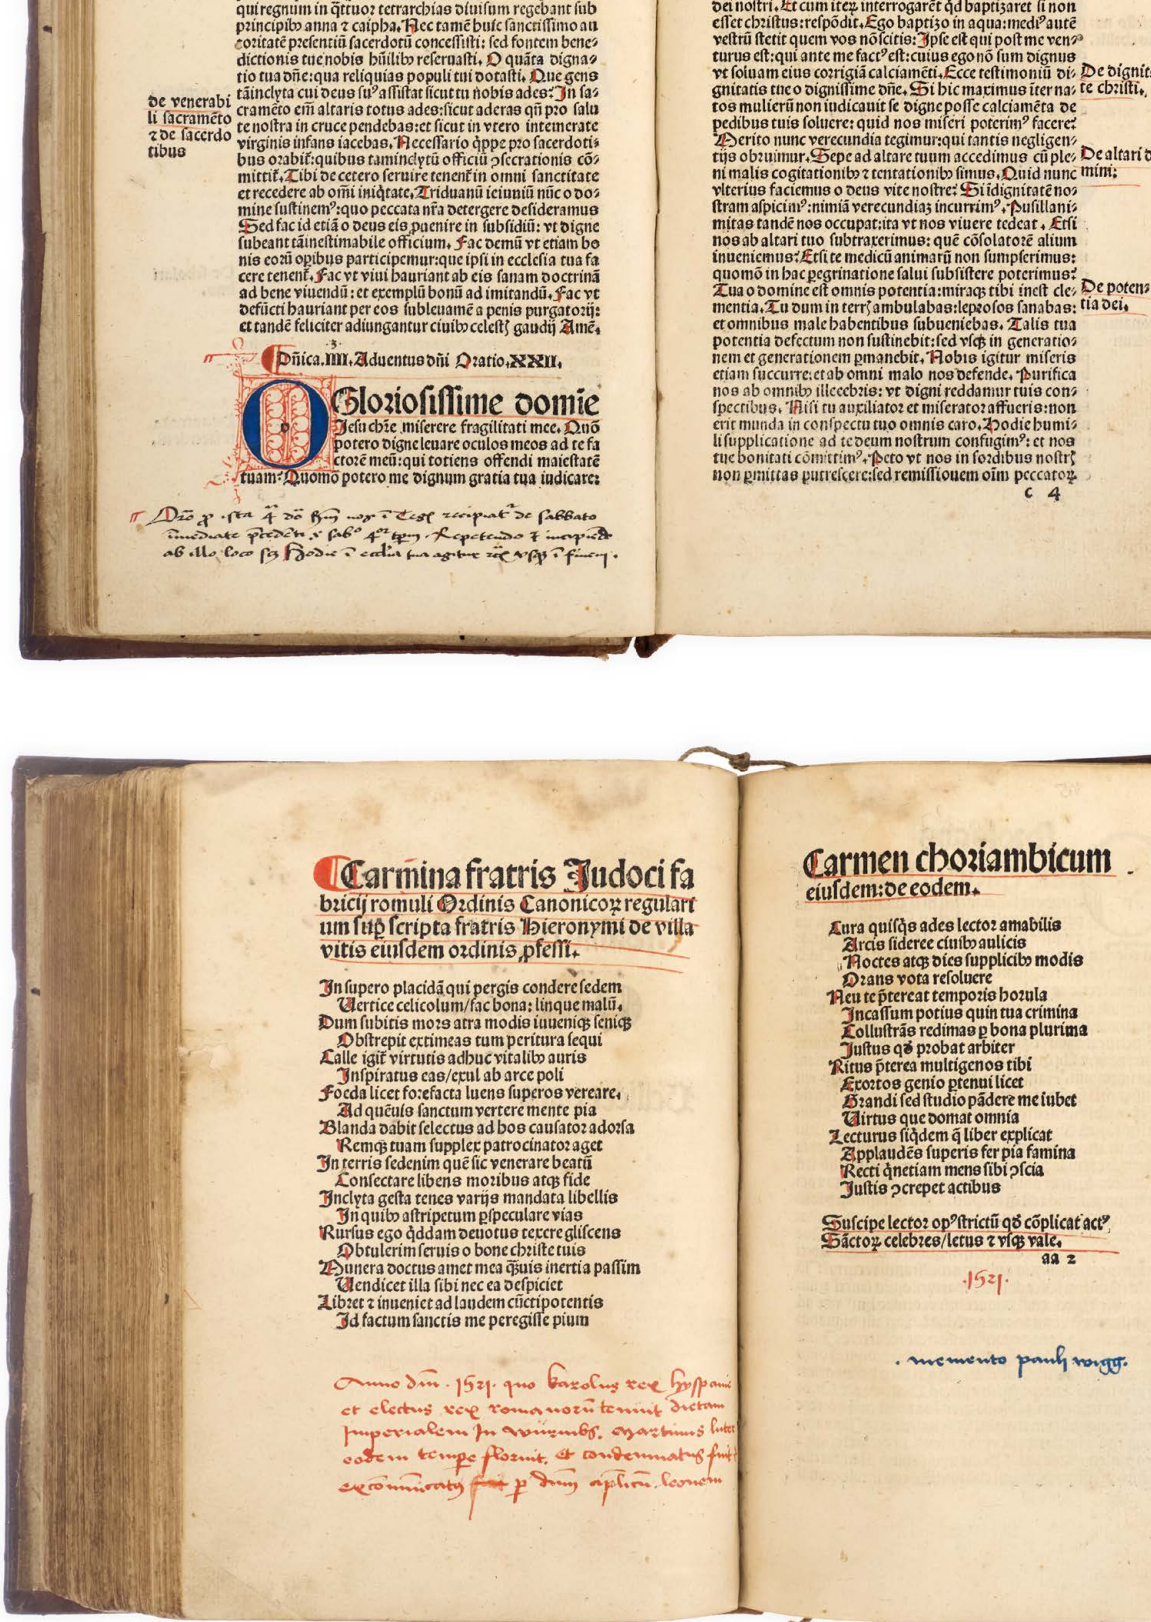 qui regnum in q̄ttuor tetrarchias diuisum regebant sub
principibꝰ anna ⁊ caipha. Nec tamē huic sanctissimo au
coritatē presentiū sacerdotū concessisti: sed fontem bene⸗
dictionis tue nobis hūilibꝰ reseruasti. O quāta digna⸗
tio tua dn̄e: qua reliquias populi tui dotasti. Que gens
tā inclyta cui deus suꝰ assistat sicut tu nobis ades: In sa⸗
cramēto em̄ altaris totus ades: sicut aderas qn̄ pro salu
te nostra in cruce pendebas: et sicut in vtero intemerate
virginis infans iacebas. Necessario q̄ppe pro sacerdoti⸗
bus orabit᷑: quibus tam inclytū officiū ꝯsecrationis cō⸗
mittit᷑. Tibi de cetero seruire tenent᷑ in omni sanctitate
et recedere ab om̄i iniq̄tate. Triduanū ieiuniū nūc o do⸗
mine sustinemꝰ: quo peccata nr̄a detergere desideramus
Sed fac id etiā o deus eis ꝓuenire in subsidiū: vt digne
subeant tā inestimabile officium. Fac demū vt etiam bo
nis eorū oꝑibus participemur: que ipsi in ecclesia tua fa
cere tenent᷑. Fac vt viui hauriant ab eis sanam doctrinā
ad bene viuendū: et exemplū bonū ad imitandū. Fac vt
defūcti hauriant per eos subleuamē a penis purgatorij:
et tandē feliciter adiungantur ciuibꝰ celestꝭ gaudij Amē.
de venerabi
li sacramēto
⁊ de sacerdo
tibus
Dn̄ica. IIII. Aduentus dn̄i Oratio. XXII.
O Gloriosissime domīe
Jesu chr̄e miserere fragilitati mee. Quō
potero digne leuare oculos meos ad te fa
ctorē meū: qui totiens offendi maiestatē
tuam: Quomō potero me dignum gratia tua iudicare:
immediate
ab illo loco scꝫ Hodie ī ecclia tua agitur
dei nostri. Et cum iteꝝ interrogarēt qd baptizaret si non
esset christus: respōdit. Ego baptizo in aqua: mediꝰ autē
vestrū stetit quem vos nōscitis: Ipse est qui post me ven⸗
turus est: qui ante me factꝰ est: cuius ego nō sum dignus
vt soluam eius corrigiā calciamēti. Ecce testimoniū di⸗
gnitatis tue o dignissime dn̄e. Si hic maximus īter na⸗
tos mulierū non iudicauit se digne posse calciamēta de
pedibus tuis soluere: quid nos miseri poterimꝰ facere:
Merito nunc verecundia tegimur: qui tantis negligen⸗
tijs obruimur. Sepe ad altare tuum accedimus cū ple⸗
ni malis cogitationibꝰ ⁊ tentationibꝰ simus. Quid nunc
vlterius faciemus o deus vite nostre: Si īdignitatē no⸗
stram aspicimꝰ: nimiā verecundiā incurrimꝰ. Pusillani⸗
mitas tandē nos occupat: ita vt nos viuere tedeat. Etsi
nos ab altari tuo subtraxerimus: quē cōsolatorē alium
inueniemus: Etsi te medicū animarū non sumpserimus:
quomō in hac ꝑegrinatione salui subsistere poterimus:
Tua o domine est omnis potentia: miraqꝫ tibi inest cle⸗
mentia. Tu dum in terrꝭ ambulabas: leprosos sanabas:
et omnibus male habentibus subueniebas. Talis tua
potentia defectum non sustinebit: sed vsqꝫ in generatio⸗
nem et generationem ꝑmanebit. Nobis igitur miseris
etiam succurre: et ab omni malo nos defende. Purifica
nos ab omnibꝰ illecebris: vt digni reddamur tuis con⸗
spectibus. Nisi tu auxiliator et miserator affueris: non
erit munda in conspectu tuo omnis caro. Hodie humi⸗
li supplicatione ad te deum nostrum confugimꝰ: et nos
tue bonitati cōmittimꝰ. Peto vt nos in sordibus nostrꝭ
non ꝑmittas putrescere: sed remissionem oīm peccatoꝝ
c 4
De dignit
te christi.
De altari d
mini:
De poten⸗
tia dei.
Carmina fratris Judoci fa
bricij romuli Ordinis Canonicoꝝ regulari
um suꝑ scripta fratris Hieronymi de villa
vitis eiusdem ordinis ꝓfessi.
In supero placidā qui pergis condere sedem
Uertice celicolum/fac bona: linque malū.
Dum subitis mors atra modis iuueniqꝫ seniqꝫ
Obstrepit extimeas tum peritura sequi
Calle igit᷑ virtutis adhuc vitalibꝰ auris
Inspiratus eas/exul ab arce poli
Foeda licet forefacta luens superos vereare.
Ad quēuis sanctum vertere mente pia
Blanda dabit selectus ad hos causator adorsa
Remqꝫ tuam supplex patrocinator aget
In terris sedenim quē sic venerare beatū
Consectare libens moribus atqꝫ fide
Inclyta gesta tenes varijs mandata libellis
In quibꝰ astripetum ꝑspeculare vias
Rursus ego q̄ddam deuotus texere gliscens
Obtulerim seruis o bone christe tuis
Munera doctus amet mea q̄ȝuis inertia passim
Uendicet illa sibi nec ea despiciet
Libret ⁊ inueniet ad laudem cūctipotentis
Id factum sanctis me peregisse pium
Anno dn̄i . 1521. quo karolus rex hyspani
et electus rex romanorū tenuit dietam
Imperialem In wūrmbs. Martinus luter
eodem tempe floruit. Et condemnatus fuit
excōmūicatꝰ ꝑ dn̄m aplicū. leonem
Carmen choriambicum
eiusdem: de eodem.
Cura quisq̄s ades lector amabilis
Arcis sideree ciuibꝰ aulicis
Noctes atqꝫ dies supplicibꝰ modis
Orans vota resoluere
Neu te p̄tereat temporis horula
Incassum potius quin tua crimina
Collustrās redimas ꝑ bona plurima
Justus qđ probat arbiter
Ritus p̄terea multigenos tibi
Exortos genio ꝑtenui licet
Grandi sed studio pādere me iubet
Uirtus que domat omnia
Lecturus siq̄dem q̄ liber explicat
Applaudēs superis fer pia famina
Recti q̄netiam mens sibi ꝯscia
Justis ꝯcrepet actibus
Suscipe lector opꝰ strictū qđ cōplicat actꝰ
Sāctoꝝ celebres/letus ⁊ vsqꝫ vale.
aa 2
.1521.
. memento pauli wigg.